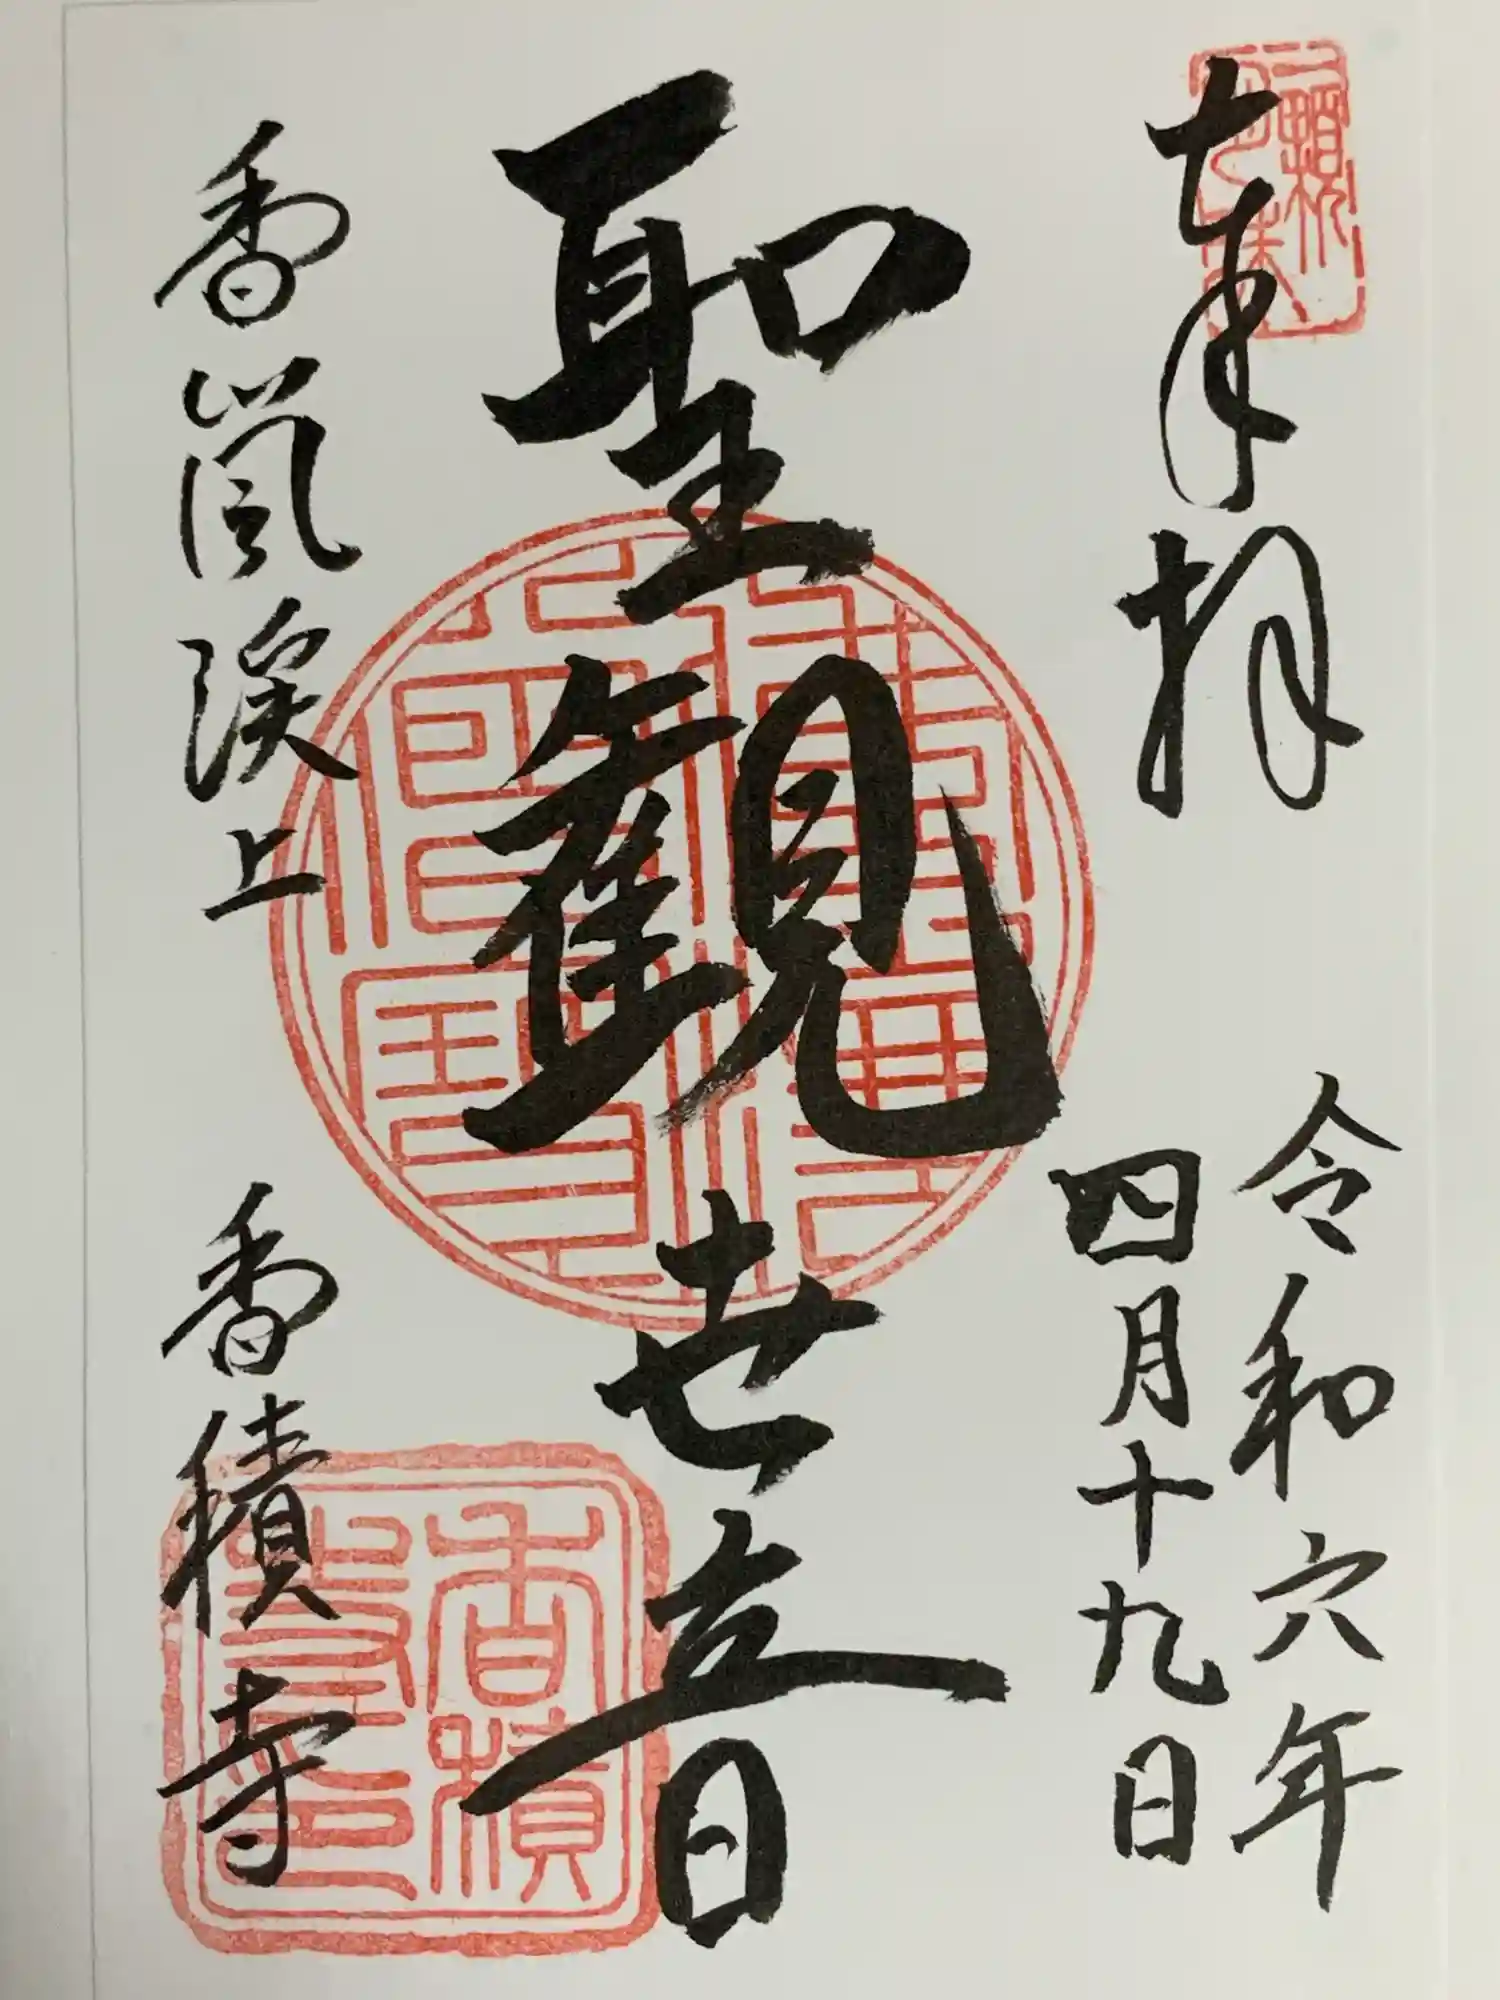 奉拝
令和六年
四月十九日
聖観世音
香嵐渓上
香積寺
香積
寺印